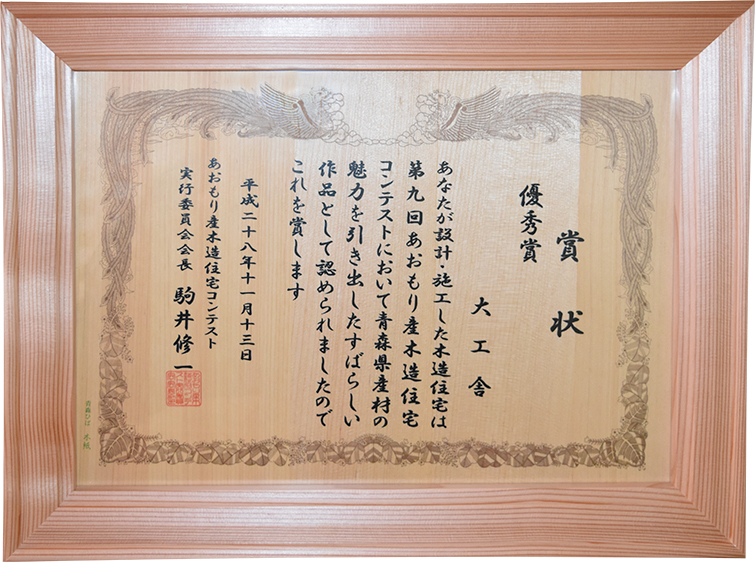 賞状
優秀賞
大工舎
あなたが設計・施工した木造住宅は
第九回あおもり産木造住宅
コンテストにおいて青森県産村の
魅力を引き出したすばらしい
作品として認められましたので
これを賞します
平成二十八年十一月十三日
あおもり産木造住宅コンテスト
実行委員会会長 駒井修一